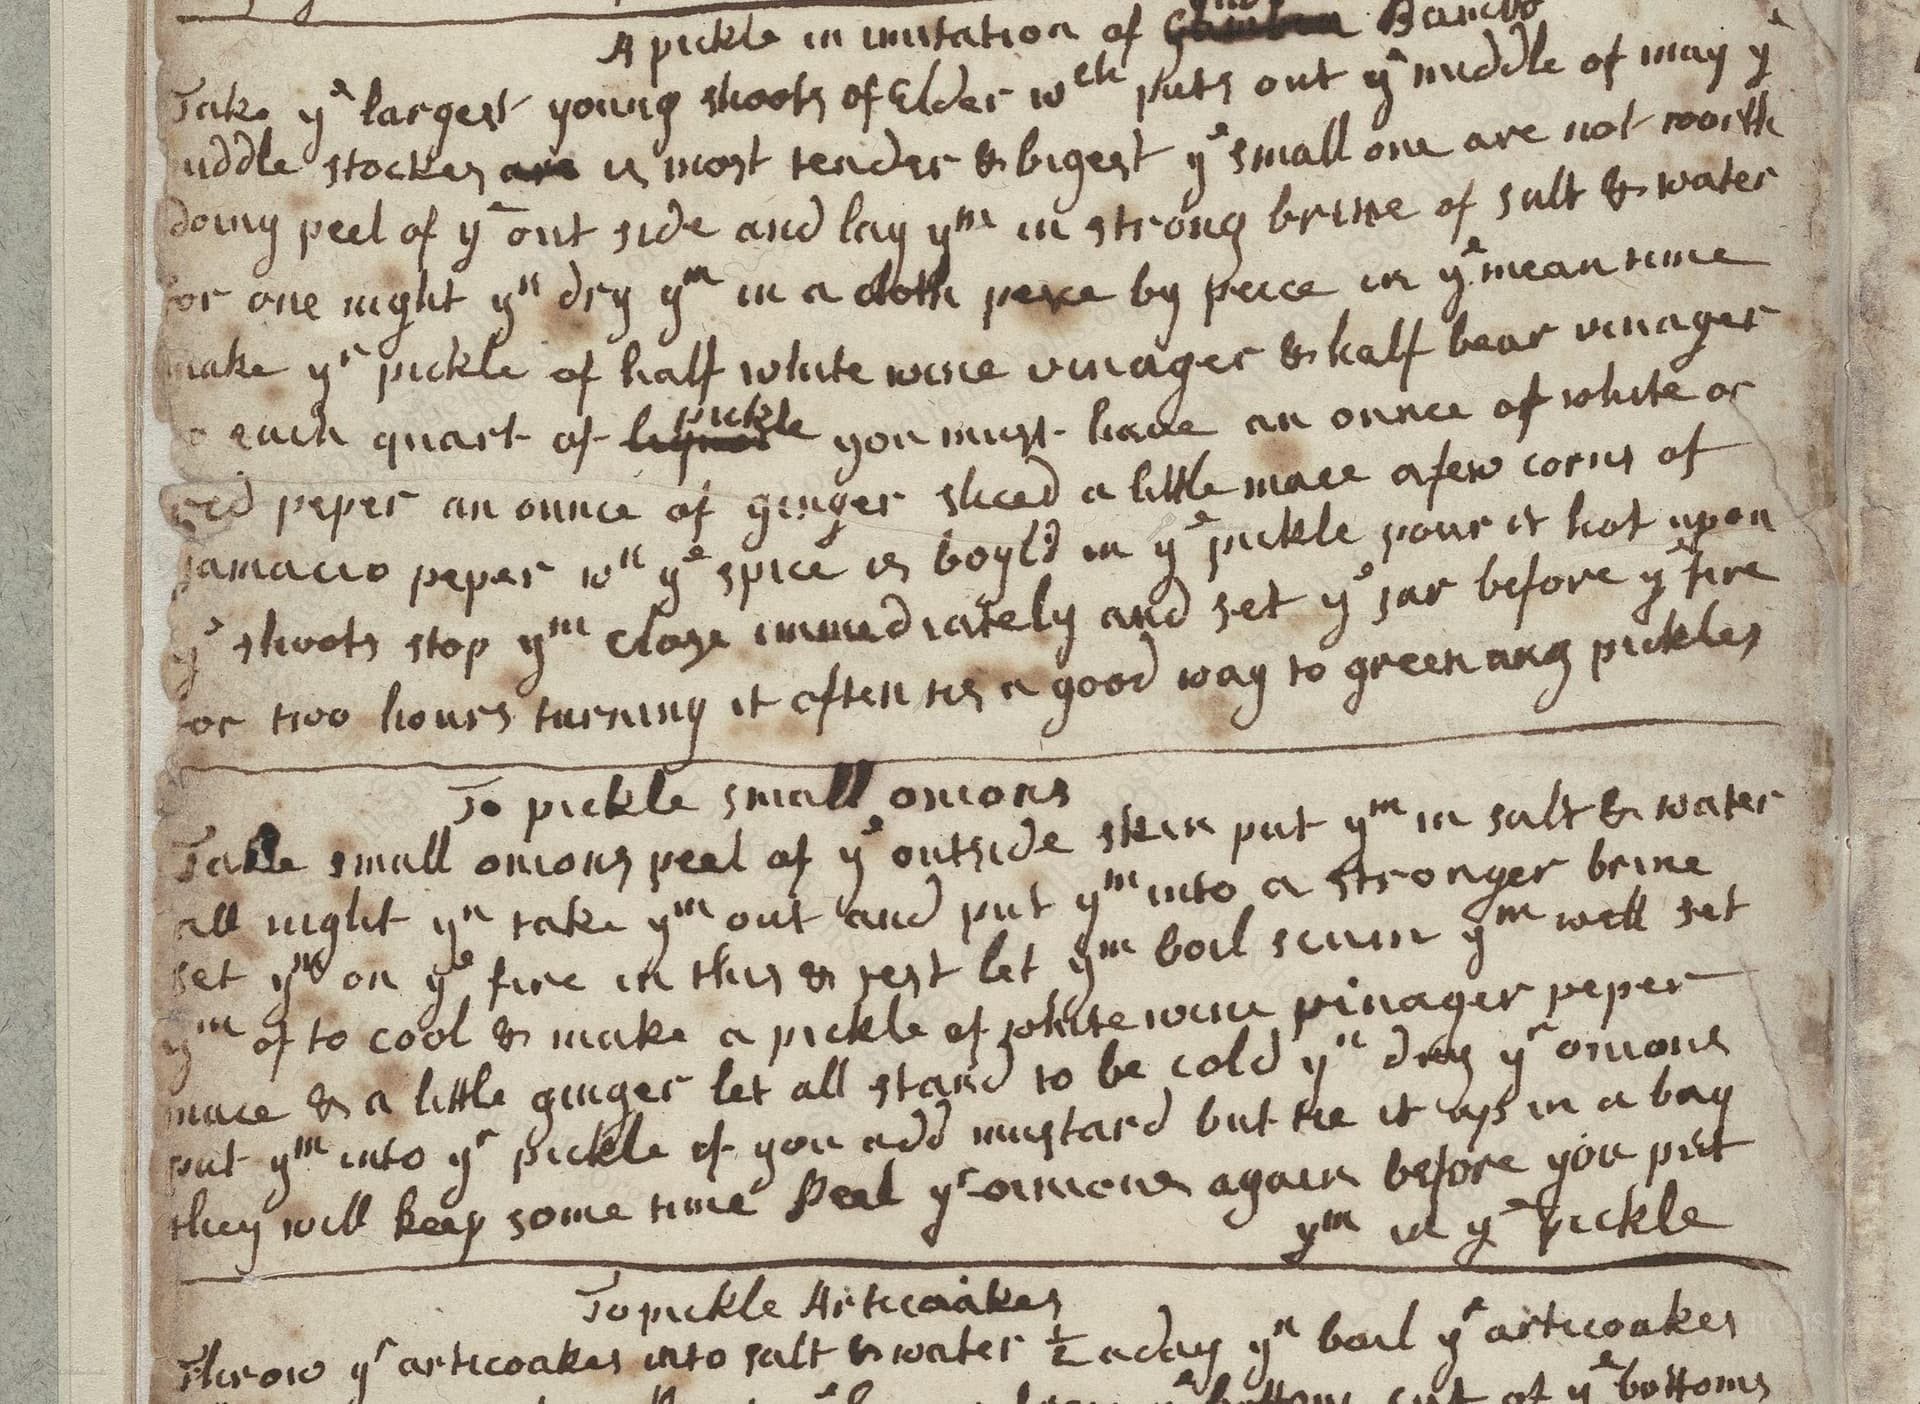 A pickle in imitation of Bambo
Take yᵉ largest young shoots of Elder wᶜʰ puts out yᵉ middle of may yᵉ
iddle stockes are is most tender & bigest yᵉ small one are not worth
doing peel of yᵉ out side and lay yᵐ in strong brine of salt & water
for one night yⁿ dry yᵐ in a cloth peice by peice in yᵉ mean time
make yʳ pickle of half white wine vinager & half bear vinager
o each quart of liquor pickle you must have an ounce of white or
red peper an ounce of ginger sliced a little mace a few corns of
jamaico peper wⁿ yᵉ spice is boyld in yᵉ pickle pour it hot upon
yᵉ shoots stop yᵐ close immediately and set yᵉ jar before yᵉ fire
for two hours turning it often tis a good way to green any pickles
To pickle small onions
Take small onions peel of yᵉ outside skin put yᵐ in salt & water
all night yⁿ take yᵐ out and put yᵐ into a stronger brine
set yᵐ on yᵉ fire in this & jest let yᵐ boil scum yᵐ well set
yᵐ of to cool & make a pickle of white wine vinager peper
mace & a little ginger let all stand to be cold yⁿ dry yʳ onions
put yᵐ into yʳ pickle if you add mustard but tie it up in a bag
they will keep some time Peel yʳ onions again before you put
yᵐ in yᵉ Pickle
To pickle Articoakes
Throw yʳ articoakes into salt & water ½ a day yⁿ boil yᵉ articoakes
bottom cut of yᵉ bottoms